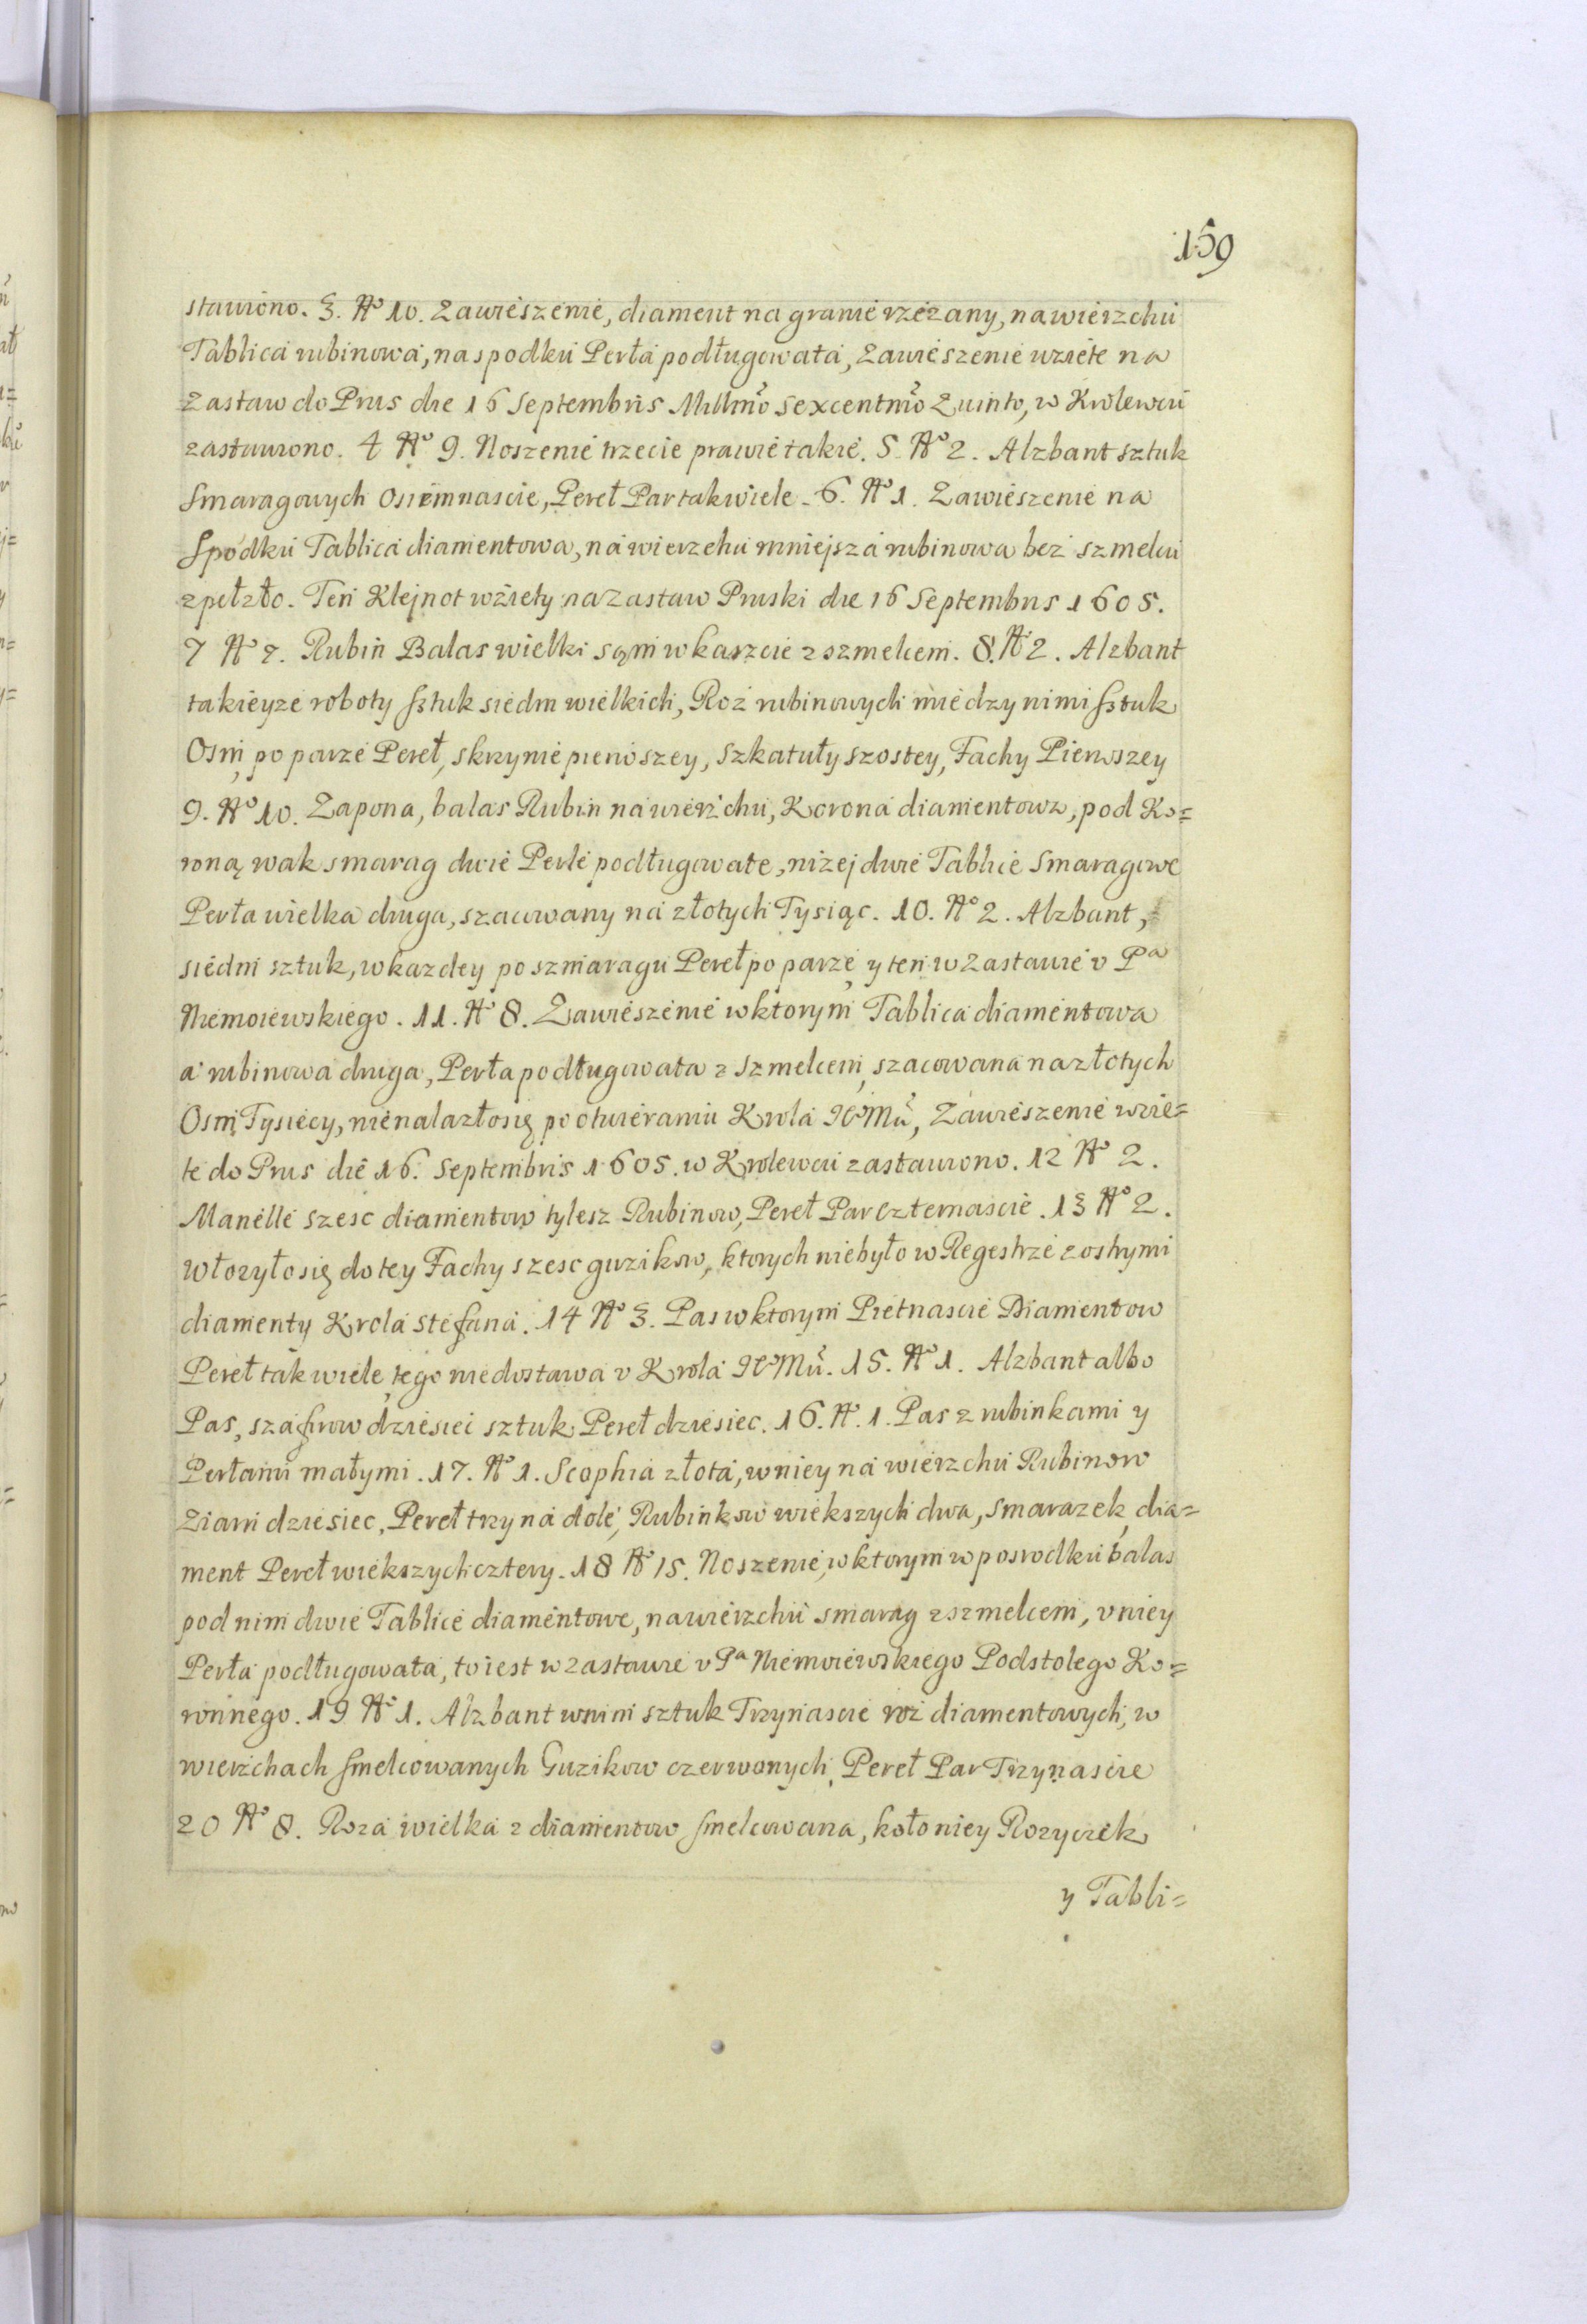 159
stawiono. 3. No 10. Zawieszenie, diament na granie rzezany, na wierzchu
Tablica rubinowa, na spodku Perła podługowata, Zawieszenie wziete na
Zastaw do Prus die 16 Septembris Millmo sexcentmo Quinto, w Krolewcu
zastawiono. 4 No 9. Noszenie trzecie prawie takie. 5. No 2. Alzbant sztuk
Smaragowych Osiemnascie, Pereł Par tak wiele. 6. No 1. Zawieszenie na
Spodku Tablica diamentowa, na wierzchu mniejsza rubinowa bez szmelcu
zpełzło. Ten Klejnot wziety na Zastaw Pruski die 16 Septembris 1605.
7 No 7. Rubin Balas wielki sąm w kaszcie z szmelcem. 8. No 2. Alzbant
takieyze roboty sztuk siedm wielkich, Roż rubinowych miedzy nimi sztuk
Osm, po parze Pereł, skrzynie pierwszey, Szkatuły szostey, Fachy Pierwszey
9. No 10. Zapona, balas Rubin na wierzchu, Korona diamentowa, pod Ko=
roną wak smarag dwie Perle podługowate, niżej dwie Tablice Smaragowe
Perła wielka druga, szacowany na złotych Tysiąc. 10. No 2. Alzbant,
siedm sztuk, w kazdey po szmaragu Pereł po parze, y ten w Zastawie v Pa
Niemoiewskiego. 11. No 8. Zawieszenie w ktorym Tablica diamentowa
a rubinowa druga, Perła podługowata z szmelcem, szacowana na złotych
Osm Tysiecy, nie nalazło się po otwieraniu Krola JeoMci, Zawieszenie wzie=
te do Prus die 16. Septembris 1605. w Krolewcu zastawiono. 12 No 2.
Manelle szesc diamentow tylesz Rubinow, Pereł Par czternascie. 13 No 2.
Włozyło się do tey Fachy szesc guzikow, ktorych niebyło w Regestrze z ostrymi
diamenty Krola Stefana. 14 No 3. Pas w ktorym Pietnascie Diamentow
Pereł tak wiele, tego niedostawa v Krola JeoMci. 15. No 1. Alzbant albo
Pas, szafirow dziesieć sztuk Pereł dziesiec. 16. No. 1. Pas z rubinkami y
Perłami małymi. 17. No 1. Scophia złota, w niey na wierzchu Rubinow
Ziarn dziesiec, Pereł trzy na dole, Rubinkow wiekszych dwa, smarazek, dia=
ment Pereł wiekszych cztery. 18 No 15. Noszenie, w ktorym w posrodku balas
pod nim dwie Tablice diamentowe, na wierzchu smarag z szmelcem, v niey
Perła podługowata, to iest w zastawie v Pa Niemoiewskiego Podstolego Ko=
ronnego. 19 No 1. Alzbant w nim sztuk Trzynascie roż diamentowych, w
wierzchach smelcowanych Guzikow czerwonych, Pereł Par Trzynascie
20 No 8. Roza wielka z diamentow smelcowana, koło niey Rozyczek
y Tabli=